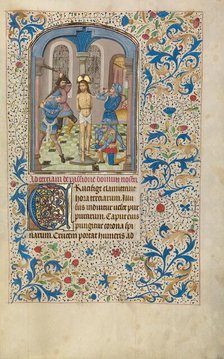 Ad terciam de passione domini nostri
Crucifige clamitant
hora terciarum Illu
sus induitur veste pur
purarum Caput eius
pungitur corona spi
narum Crucem portat humeris ad